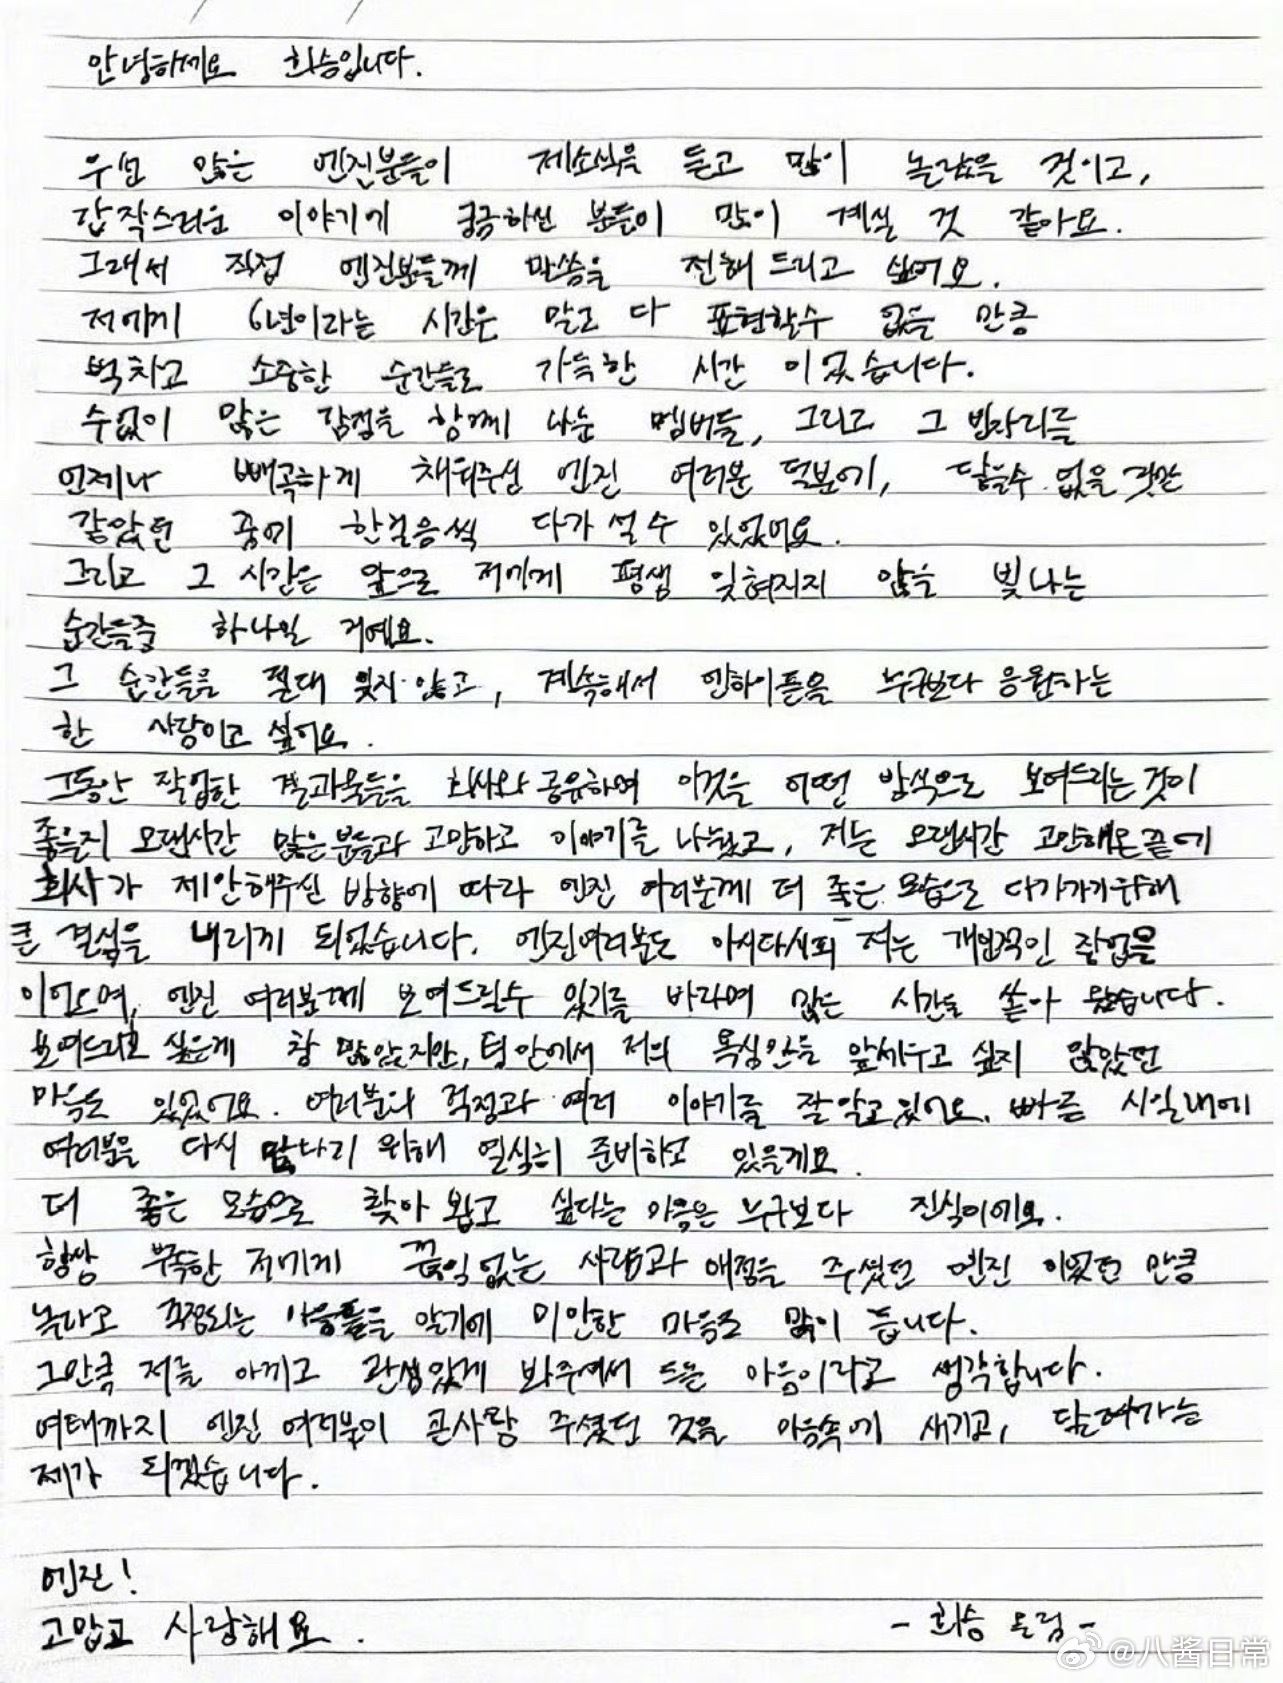 안녕하세요 희승입니다.
우선 많은 엔진분들이 제소식을 듣고 많이 놀랐을 것이고,
갑작스러운 이야기에 궁금하신 분들이 많이 계실 것 같아요.
그래서 직접 엔진분들께 말씀을 전해 드리고 싶어요.
저에게 6년이라는 시간은 말로 다 표현할수 없을 만큼
벅차고 소중한 순간들로 가득한 시간 이었습니다.
수없이 많은 감정을 함께 나눈 멤버들, 그리고 그 빈자리를
언제나 빼곡하게 채워주신 엔진 여러분 덕분에, 닿을수 없을 것만
같았던 꿈에 한걸음씩 다가설수 있었어요.
그리고 그 시간은 앞으로 저에게 평생 잊혀지지 않을 빛나는
순간들중 하나일 거예요.
그 순간들을 절대 잊지 않고, 계속해서 엔하이픈을 누구보다 응원하는
한 사람이고 싶어요.
그동안 작업한 결과물들을 회사와 공유하며 이것을 어떤 방식으로 보여드리는것이
좋을지 오랜시간 많은분들과 고민하고 이야기를 나눴고, 저는 오랜시간 고민해온끝에
회사가 제안해주신 방향에 따라 엔진 여러분께 더 좋은 모습으로 다가가기위해
큰 결심을 내리게 되었습니다. 엔진여러분도 아시다시피 저는 개인적인 작업을
이어오며, 엔진 여러분께 보여드릴수 있기를 바라며 많은 시간을 쏟아 왔습니다.
보여드리고 싶은게 참 많았지만, 팀 안에서 저의 욕심만을 앞세우고 싶지 않았던
마음도 있었어요. 여러분의 걱정과 여러 이야기를 잘 알고있어요. 빠른 시일내에
여러분을 다시 만나기 위해 열심히 준비하고 있을게요.
더 좋은 모습으로 찾아 뵙고 싶다는 마음은 누구보다 진심이에요.
항상 부족한 저에게 끊임없는 사랑과 애정을 주셨던 엔진 이었던 만큼
놀라고 걱정되는 마음들을 알기에 미안한 마음도 많이 듭니다.
그만큼 저를 아끼고 관심있게 봐주셔서 드는 마음이라고 생각합니다.
여태까지 엔진 여러분이 큰사랑 주셨던 것을 마음속에 새기고, 담아가는
제가 되겠습니다.
엔진!
고맙고 사랑해요.
- 희승 올림 -
@八酱日常